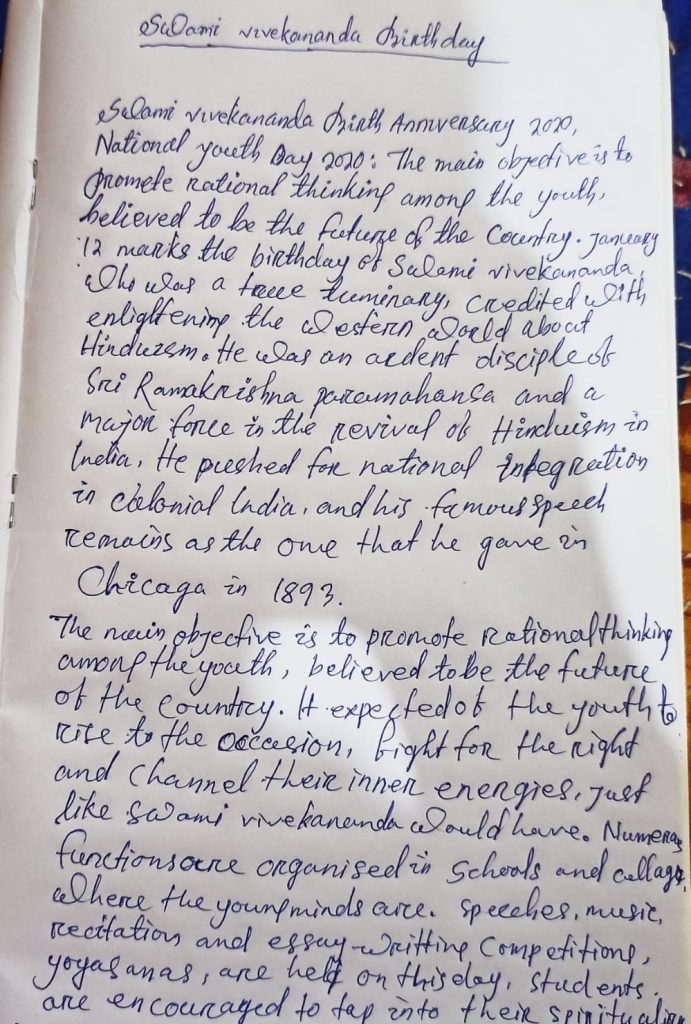 Swami vivekananda Birthday
Swami vivekananda Birth Anniversary 2020,
National youth Day 2020: The main objective is to
promote rational thinking among the youth,
believed to be the future of the Country. january
12 marks the birthday of Swami vivekananda,
Who was a true luminary, credited With
enlightening the Western World about
Hinduism. He was an ardent disciple of
Sri Ramakrishna paramahansa and a
major force in the revival of Hinduism in
India, He pushed for national integration
in colonial India, and his famous speech
remains as the one that he gave in
Chicaga in 1893.
The main objective is to promote rational thinking
among the youth, believed to be the future
of the country. It expected of the youth to
rise to the occasion, fight for the right
and channel their inner energies, just
like swami vivekananda Would have. Numeras
functions are organised in Schools and collage,
Where the young minds are. speeches, music,
recitation and essay-writting Competitions,
yogasanas, are held on this day, students.
are encouraged to tap into their spiritualism